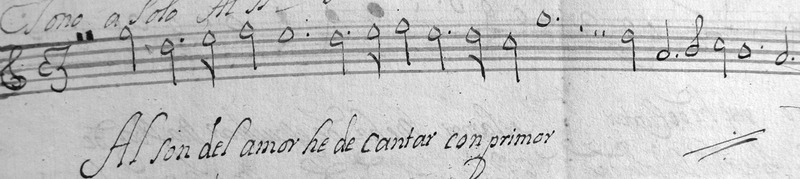 Tono a solo Al s
Al son del amor he de cantar con primor